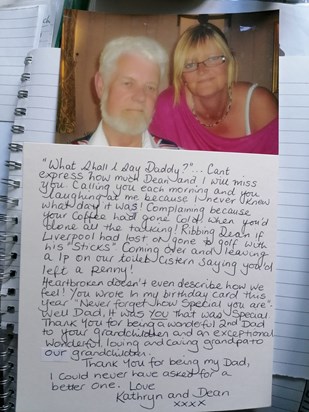 "What Shall I Say Daddy?"... Cant
express how much Dean and I will miss
you. Calling you each morning and you
laughing at me because I never knew
what day it was! Complaining because
your Coffee had gone Cold when you'd
done all the talking! Ribbing Dean if
Liverpool had lost or gone to golf with
his "Sticks" Coming over and leaving
a 1p on our toilet cistern saying you'd
left a Penny!
Heartbroken doesn't even describe how we
feel! You wrote in my birthday card this
year "Never forget how Special you are".
Well Dad, It was You that was Special.
Thank You for being a wonderful 2nd Dad
to your Grandchildren and an exceptional
wonderful loving and caring grandpa to
our grandchildren.
Thank You for being my Dad,
I could never have asked for a
better one. Love
Kathryn and Dean
xxxx